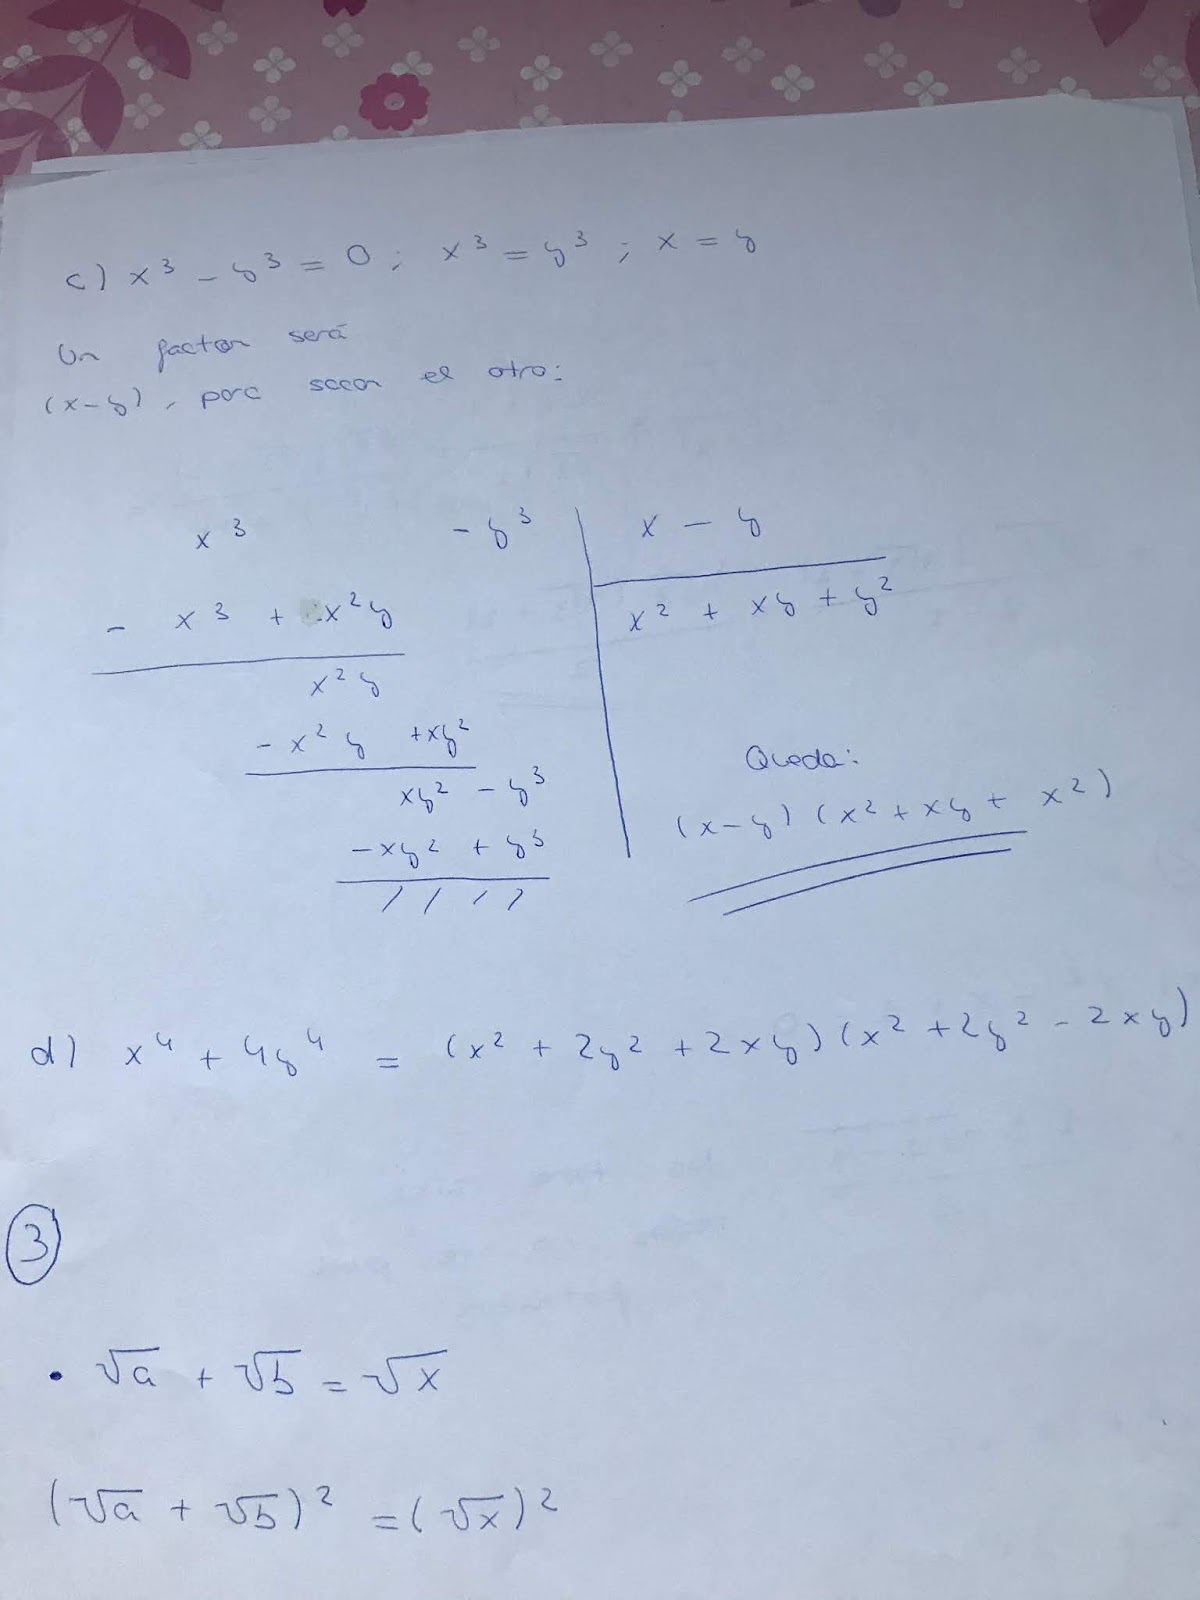 c) x³ - y³ = 0 ; x³ = y³ ; x = y
Un factor será
(x-y), para sacar el otro:
x³ - y³ | x - y
- x³ + x²y | x² + xy + y²
x²y
- x²y + xy²
xy² - y³
- xy² + y³
/ / / /
Queda:
(x-y) (x² + xy + x²)
d) x⁴ + 4y⁴ = (x² + 2y² + 2xy) (x² + 2y² - 2xy)
3
• √a + √b = √x
(√a + √b)² = (√x)²